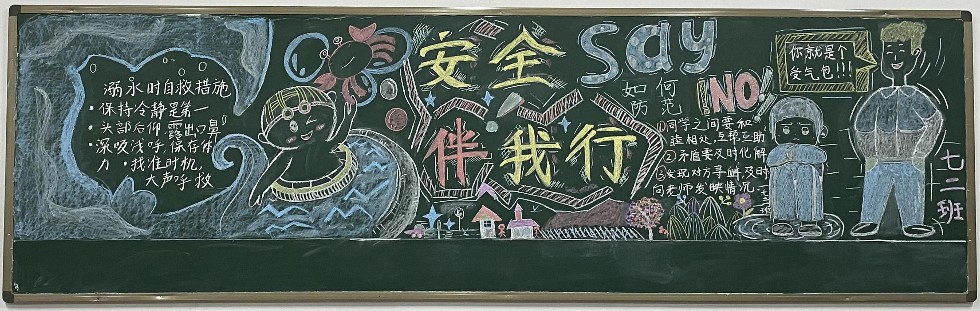 溺水时自救措施
·保持冷静是第一
·头部后仰,露出口鼻
·深吸浅呼,保存体
力 ·找准时机,
大声呼救
安全
伴我行
say
NO!
如何
防范
①同学之间要和
睦相处,互帮互助
②矛盾要及时化解
③发现对方寻衅,及时
向老师发映情况
你就是个
受气包!!!
七二班